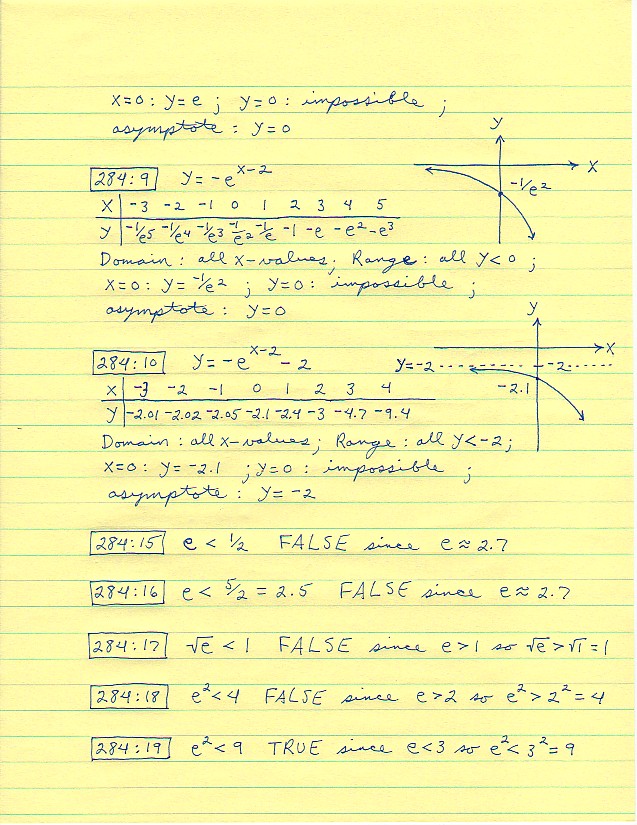 x=0: y=e ; y=0: impossible ;
asymptote: y=0
y
x
-1/e²
284:9 y=-e^{x-2}
x | -3 -2 -1 0 1 2 3 4 5
y | -1/e5 -1/e4 -1/e3 -1/e2 -1/e -1 -e -e² -e³
Domain: all x-values; Range: all y<0 ;
x=0: y=-1/e² ; y=0: impossible ;
asymptote: y=0
y
x
y=-2
-2
-2.1
284:10 y=-e^{x-2}-2
x | -3 -2 -1 0 1 2 3 4
y | -2.01 -2.02 -2.05 -2.1 -2.4 -3 -4.7 -9.4
Domain: all x-values; Range: all y<-2;
x=0: y=-2.1 ; y=0: impossible ;
asymptote: y=-2
284:15 e < 1/2 FALSE since e≈2.7
284:16 e < 5/2 = 2.5 FALSE since e≈2.7
284:17 √e < 1 FALSE since e>1 so √e>√1=1
284:18 e²<4 FALSE since e>2 so e²>2²=4
284:19 e²<9 TRUE since e<3 so e²<3²=9